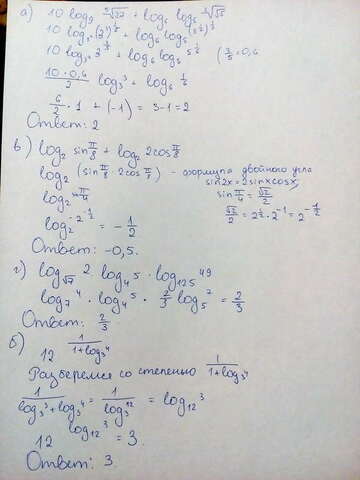 а) 10 log₉ ⁵√27 + log₆ log₅ ⁶√5
10 log₃² (3³)^(1/5) + log₆ log₅ 
10 log₃² 3^(3/5) + log₆ log₅ 5^(1/6) ( 3/5 = 0,6
10·0,6/2 log₃ 3 + log₆ 1/6
6/2 · 1 + (-1) = 3-1=2
Ответ: 2
в) log₂ sin π/8 + log₂ 2cos π/8
log₂ (sin π/8 2cos π/8) - формула двойного угла
sin2x = 2sinxcosx
log₂ sin π/4 sin π/4 = √2/2
log₂ 2^(-1/2) = -1/2 √2/2 = 2^(1/2)·2^(-1) = 2^(-1/2)
Ответ: -0,5.
г) log_√7 2 log₄ 5 · log₁₂₅ 49
log₇ 4 · log₄ 5 · 2/3 log₅ 7 = 2/3
Ответ: 2/3.
б) 12^(1/(1+log₃ 4))
Разберемся со степенью 1/(1+log₃ 4)
1/(log₃ 3 + log₃ 4) = 1/(log₃ 12) = log₁₂ 3
12^(log₁₂ 3) = 3.
Ответ: 3.